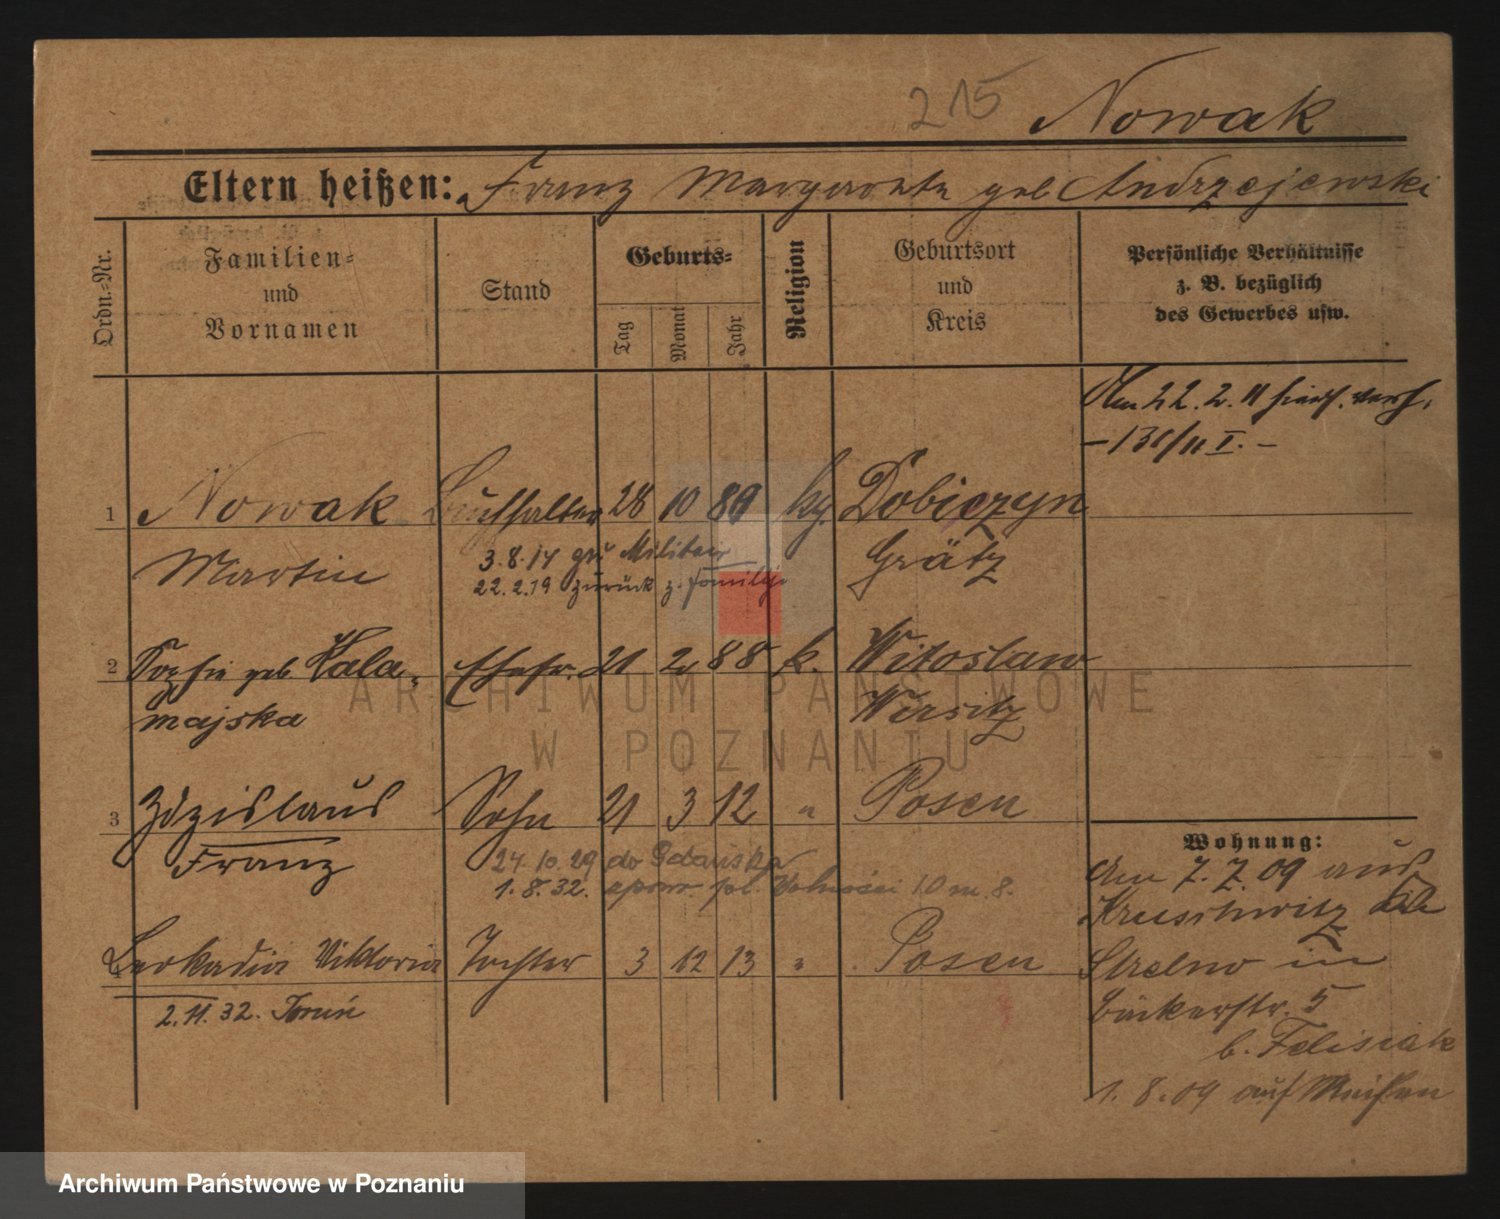 215 Nowak
Eltern heißen: Franz Margareta geb Andrzejewski
Ordn.=Nr.
Familien=
und
Vornamen
Stand
Geburts=
Tag
Monat
Jahr
Religion
Geburtsort
und
Kreis
Persönliche Verhältnisse
z. B. bezüglich
des Gewerbes usw.
Am 22.2.11 verh.
1 Nowak Buchhalter 28 10 89 Dobiezyn
Martin Grätz
3.8.14 Militair
22.2.19 zurück z. Familje
2 geb. Hala-
majska
Ehefr. 21 2 88 k. Witoslaw
Wirsitz
3 Zdzislaus Sohn 21 3 12 " Posen
Franz
24.10.29 do Gdańska
1.8.32. pl. Wolności 10 m. 8.
4 Leokadia Viktoria Tochter 3 12 13 " Posen
2.11.32. Toruń
Wohnung:
Am 7.7.09 aus
Kruschwitz
Strelno in
Bäckerstr. 5
b. Felisiak
1.8.09 auf Reisen
ARCHIWUM PAŃSTWOWE
W POZNANIU
Archiwum Państwowe w Poznaniu